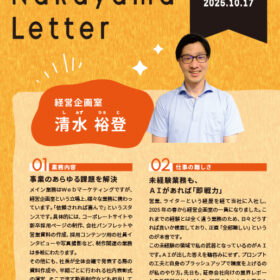 Nakayama
Letter
2025.10.17
経営企画室
しみず ひろと
清水 裕登
01 業務内容
事業のあらゆる課題を解決
メイン業務はWebマーケティングですが、
経営企画室という立場上、様々な業務に携わっ
ています。「依頼されれば喜んで」というスタ
ンスです。具体的には、コーポレートサイトや
新卒採用ページの制作、会社パンフレットや
営業資料の作成、採用コンテンツ用の社員イ
ンタビューや写真撮影など、制作関連の業務
は多岐にわたります。
その他にも、社長が全体会議で発表する際の
資料作成や、年頭ごとに行われる社内表彰式
02 仕事の難しさ
未経験業務も、
AIがあれば「即戦力」
営業、ライターという経歴を経て当社に入社し、
2025年の春から経営企画室の一員になりました。こ
れまでの経験とは全く違う業務のため、日々どうす
れば良いか模索しており、正直「全部難しい」という
のが本音です。
この未経験の領域で私の武器となっているのがAIで
す。AIが出した答えを鵜呑みにせず、プロンプト
の工夫と自身のブラッシュアップで精度を上げるの
が私のやり方。先日も、証券会社向けの業界